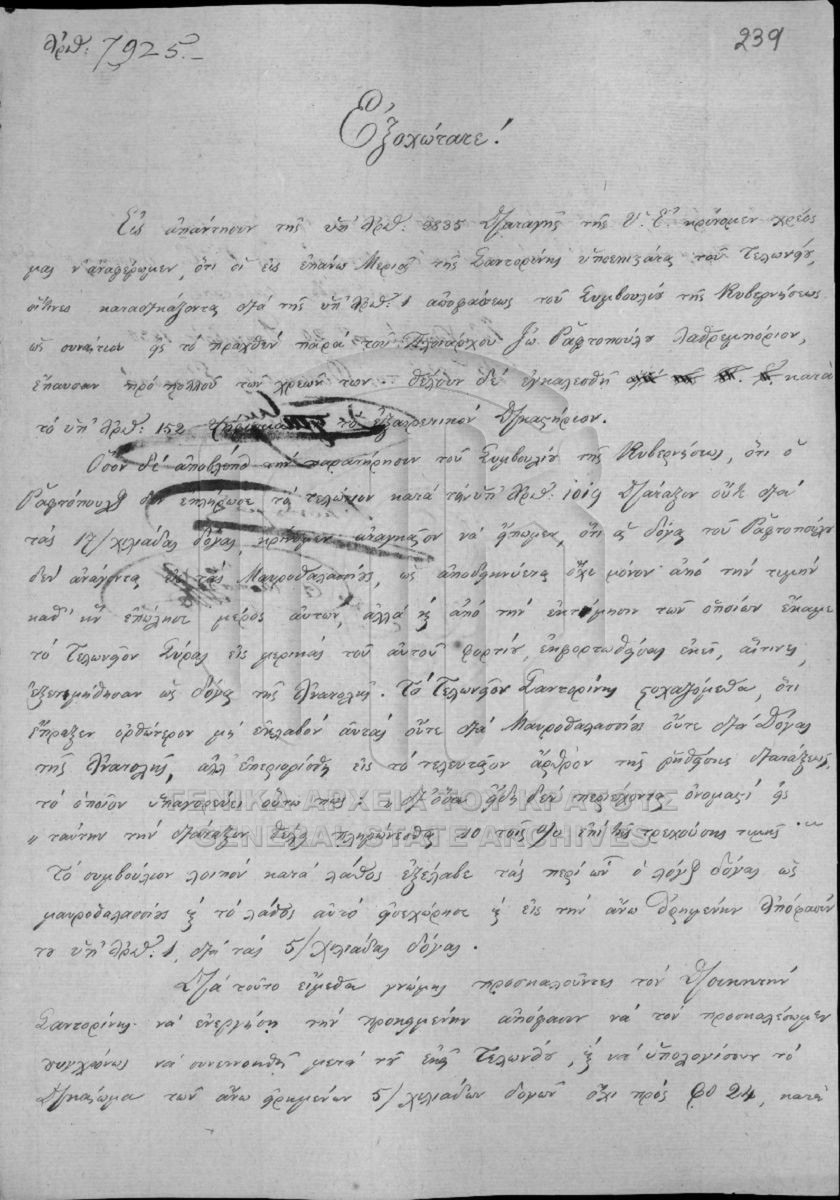 Ἀριθ: 7925.—
239
Ἐξοχώτατε!
Εἰς ἀπάντησιν τῆς ὑπ' Ἀριθ. 9835 Διαταγῆς τῆς Ὑ. Ἐ. κρίνομεν χρέος
μας ν' ἀναφέρωμεν, ὅτι οἱ εἰς ἐπάνω Μεριὰ τῆς Σαντορίνης ὑποεπιστάται τοῦ Τελωνείου,
οἵτινες καταδικάζονται διὰ τῆς ὑπ' Ἀριθ. 1 ἀποφάσεως τοῦ Συμβουλίου τῆς Κυβερνήσεως
ὡς συναίτιοι εἰς τὸ πραχθὲν παρὰ τοῦ Πλοιάρχου Ἰω. Ῥαφτοπούλου λαθρεμπόριον,
ἔπαυσαν πρὸ πολλοῦ τῶν χρεῶν των. θέλουν δὲ ἐγκαλεσθῆ κατὰ
τὸ ὑπ' Ἀριθ. 152 τὸ ἐξαιρετικὸν Δικαστήριον.
Ὅσον δὲ ἀποβλέπει τὴν παρατήρησιν τοῦ Συμβουλίου τῆς Κυβερνήσεως, ὅτι ὁ
Ῥαφτόπουλος δὲν ἐπλήρωσε τὸ τελώνιον κατὰ τὴν ὑπ' Ἀριθ. 1019 Διάταξιν οὔτε διὰ
τὰς 17/χιλιάδας δόγας, κρίνομεν ἀναγκαῖον νὰ εἴπωμεν, ὅτι αἱ δόγαι τοῦ Ῥαφτοπούλου
δὲν ἀνάγονται εἰς τὰς Μαυροθαλασσίας, ὡς ἀποδεικνύεται ὄχι μόνον ἀπὸ τὴν τιμὴν
καθ' ἣν ἐπώλησε μέρος αὐτῶν, ἀλλὰ καὶ ἀπὸ τὴν ἐκτίμησιν τῶν ὁποίων ἔκαμε
τὸ Τελωνεῖον Σύρας εἰς μερικὰς τοῦ αὐτοῦ φορτίου, ἐκφορτωθείσας ἐκεῖ, αἵτινες
ἐξετιμήθησαν ὡς δόγαι τῆς Ἀνατολῆς. Τὸ Τελωνεῖον Σαντορίνης στοχαζόμεθα, ὅτι
ἔπραξεν ὀρθώτερον μὴ ἐκλαβὸν αὐτὰς οὔτε διὰ Μαυροθαλασσίας οὔτε διὰ Δόγας
τῆς Ἀνατολῆς, ἀλλ' ἐπεριορίσθη εἰς τὸ τελευταῖον ἄρθρον τῆς ῥηθείσης διατάξεως,
τὸ ὁποῖον ὑπαγορεύει οὕτω πως: „ δι' ὅσα εἴδη δὲν περιέχονται ὀνομαστὶ εἰς
„ ταύτην τὴν διάταξιν θέλει πληρώνεσθαι 10 τοῖς ο/ο ἐπὶ τῆς τρεχούσης τιμῆς."
Τὸ συμβούλιον λοιπὸν κατὰ λάθος ἐξέλαβε τὰς περὶ ὧν ὁ λόγος δόγας ὡς
μαυροθαλασσίας καὶ τὸ λάθος αὐτὸ παρεχώρησε καὶ εἰς τὴν ἄνω εἰρημένην Ἀπόφασίν
του ὑπ' Ἀριθ. 1, διὰ τὰς 5/χιλιάδας δόγας.
Διὰ τοῦτο εἴμεθα γνώμης προσκαλοῦντες τὸν Διοικητὴν
Σαντορίνης νὰ ἐνεργήσῃ τὴν προκειμένην ἀπόφασιν νὰ τὸν προσκαλέσωμεν
συγχρόνως νὰ συνεννοηθῇ μετὰ τοῦ ἐκεῖ Τελωνείου, καὶ νὰ ὑπολογίσουν τὸ
Δικαίωμα τῶν ἄνω εἰρημένων 5/χιλιάδων δογῶν ὄχι πρὸς 24, κατὰ
ΓΕΝΙΚΑ ΑΡΧΕΙΑ ΤΟΥ ΚΡΑΤΟΥΣ
GENERAL STATE ARCHIVES